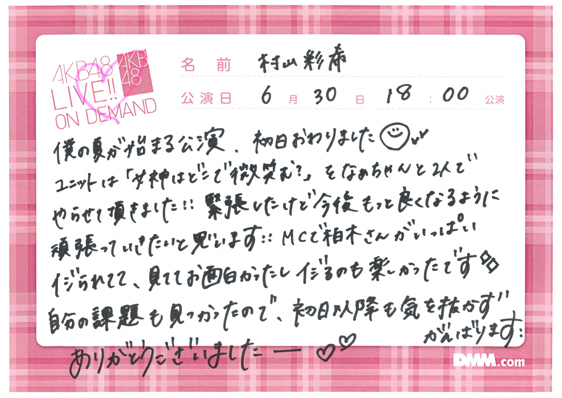 AKB48
LIVE!!
ON DEMAND
AKB
48
名前 村山彩希
公演日 6月30日 18:00公演
僕の夏が始まる公演、初日おわりました
ユニットは「女神はどこで微笑む?」をなぁちゃんと2人で
やらせて頂きました!! 緊張したけど今後もっと良くなるように
頑張っていきたいと思います!! MCで柏木さんがいっぱい
イジられてて、見てて面白かったしイジるのも楽しかったです
自分の課題も見つかったので、初日以降も気を抜かず
がんばります!
ありがとうございましたー
DMM.com